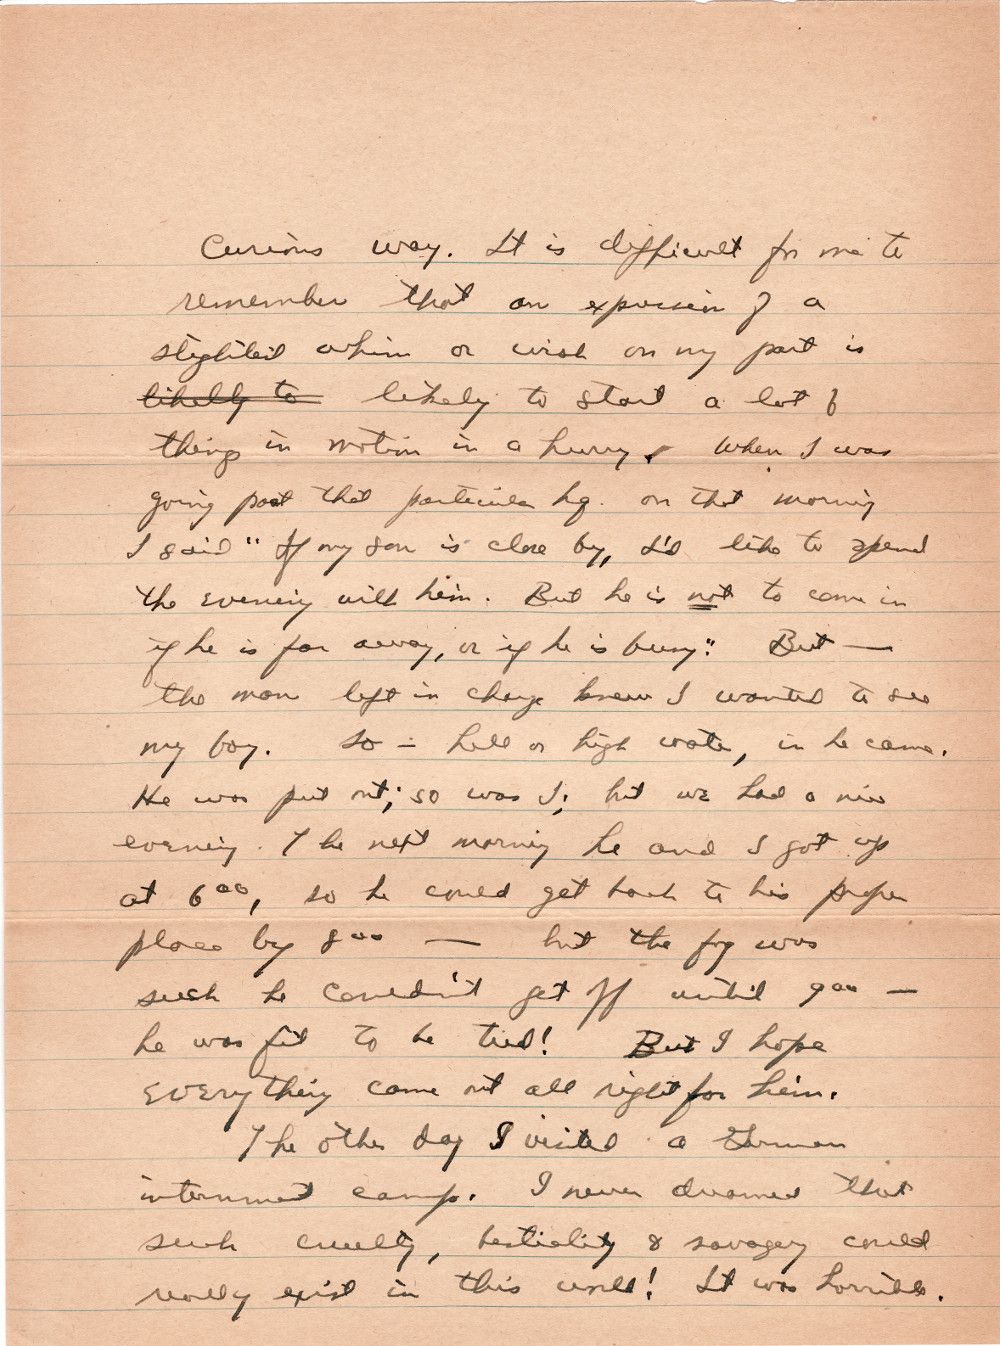 Curious way. It is difficult for me to
remember that an expression of a
slightest whim or wish on my part is
likely to likely to start a lot of
things in motion in a hurry. When I was
going past that particular hq. on that morning
I said "If my son is close by, I'd like to spend
the evening with him. But he is not to come in
if he is far away, or if he is busy." But —
the man left in charge knew I wanted to see
my boy. So — hell or high water, in he came.
He was put out; so was I; but we had a nice
evening. The next morning he and I got up
at 6⁰⁰, so he could get back to his proper
place by 8⁰⁰ — but the fog was
such he couldn't get off until 9⁰⁰ —
he was fit to be tied! But I hope
everything came out all right for him.
The other day I visited a German
internment camp. I never dreamed that
such cruelty, bestiality & savagery could
really exist in this world! It was horrible.